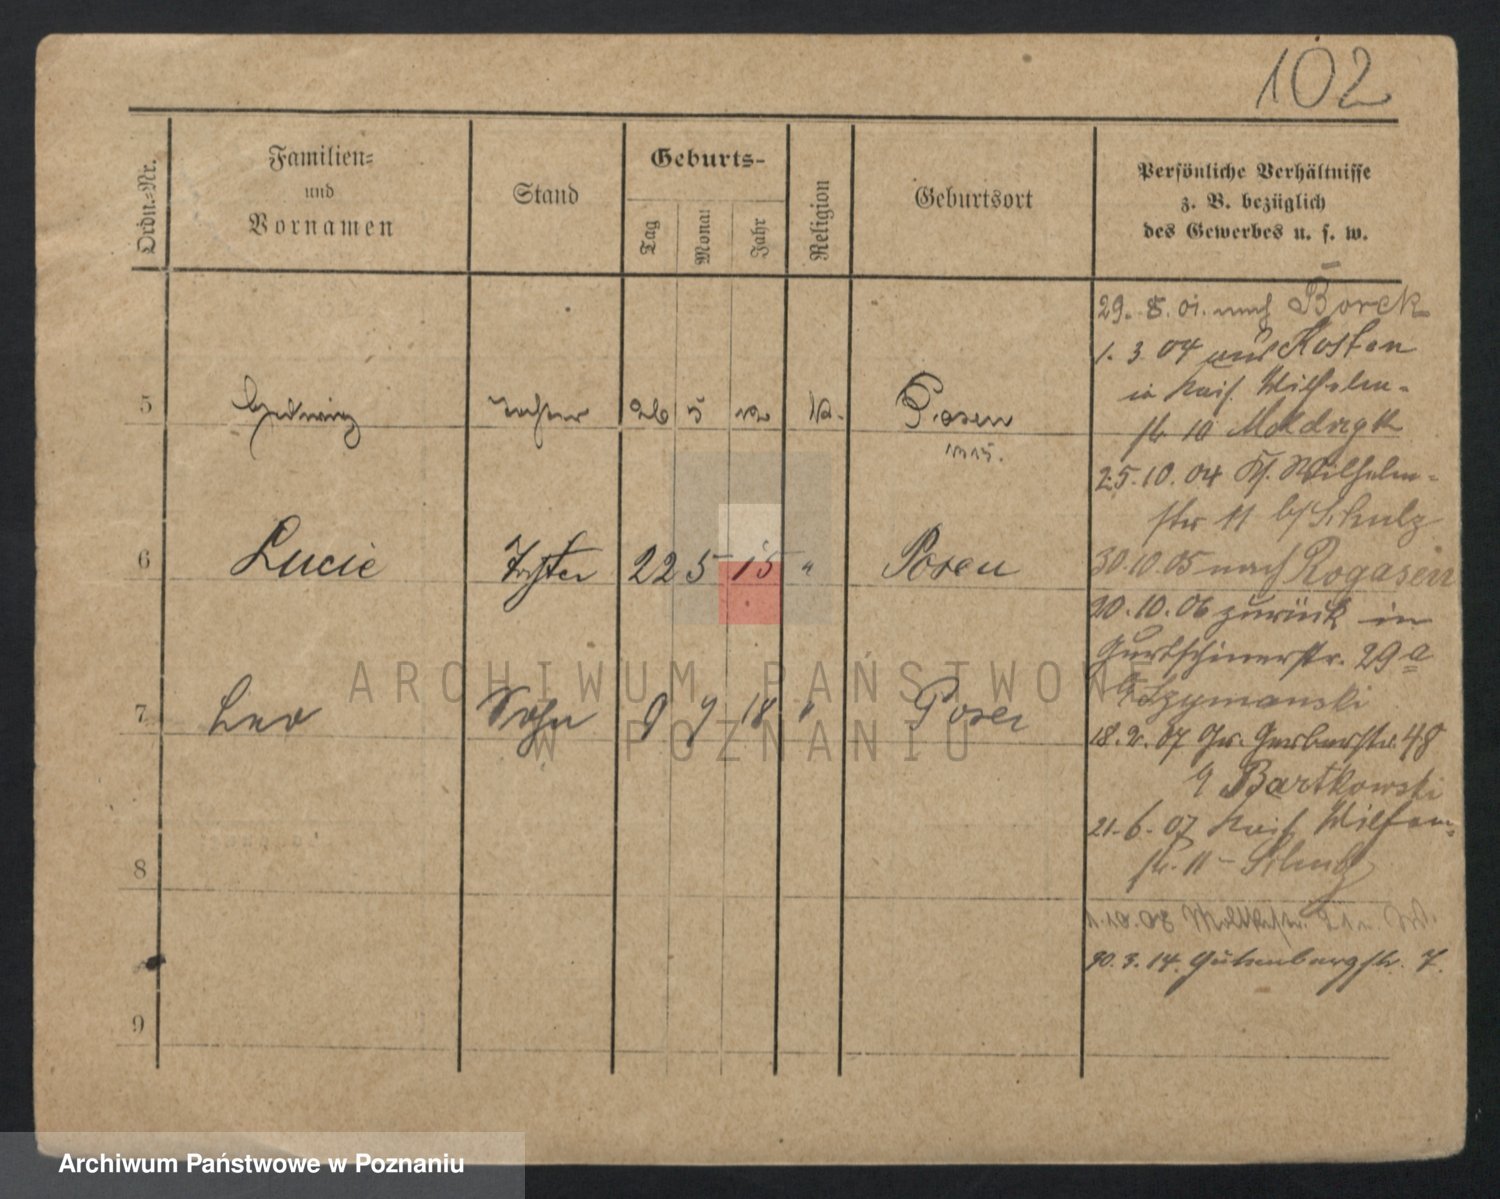 102
Ordn.-Nr.
Familien-
und
Vornamen
Stand
Geburts-
Tag
Monat
Jahr
Religion
Geburtsort
Persönliche Verhältnisse
z. B. bezüglich
des Gewerbes u. s. w.
29. 8. 01. nach Borek
1. 3 04 aus Kosten
in Kais. Wilhelm-
str 10
5 Hedwig Tochter 26 5 12 k. Posen
25. 10. 04 K. Wilhelm-
str 11 b/ Schulz
6 Lucie Tochter 22 5 15 " Posen
30.10.05 nach Rogasen
20. 10. 06 zurück in
Gurtschinerstr. 29a
b Szymanski
7 Leo Sohn 9 7 18 " Posen
18. 2. 07 Gr. Gerberstr. 48
b Bartkowski
21. 6. 07 Kais. Wilhelm-
str. 11 - Schulz
8
1. 10. 08 Moltkestr.
30. 3. 14. Gutenbergstr. 7.
9
ARCHIWUM PAŃSTWOWE
W POZNANIU
Archiwum Państwowe w Poznaniu